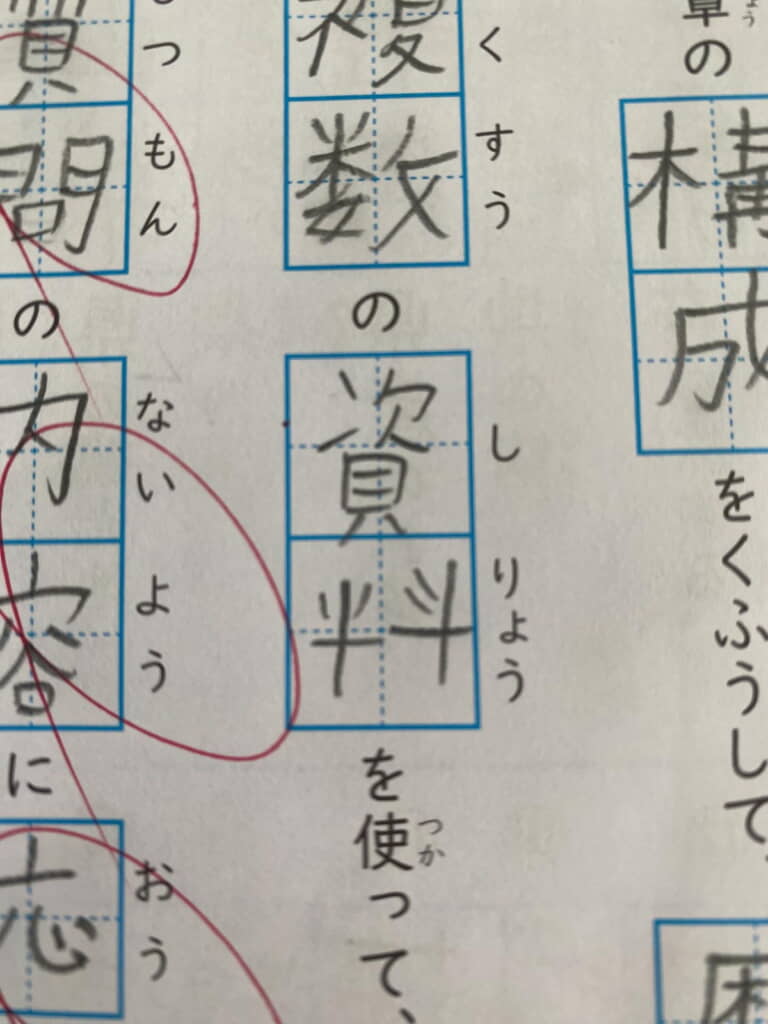 章の構成をくふうして、
ょう
複数の資料を使って、
くすう
しりょう
つか
質問の内容に応
つもん
ないよう
おう